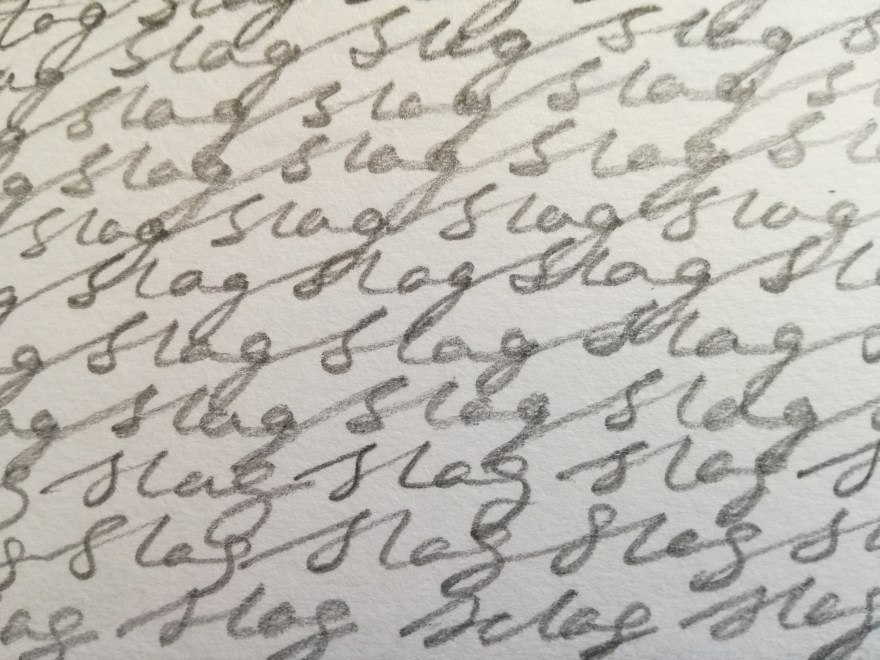 slag slag
ag slag slag slag
slag slag slag
g slag slag slag
slag slag slag slag
g slag slag slag
ag slag slag slag
ag slag slag slag
g slag slag slag
g slag slag slag
ag slag slag slag